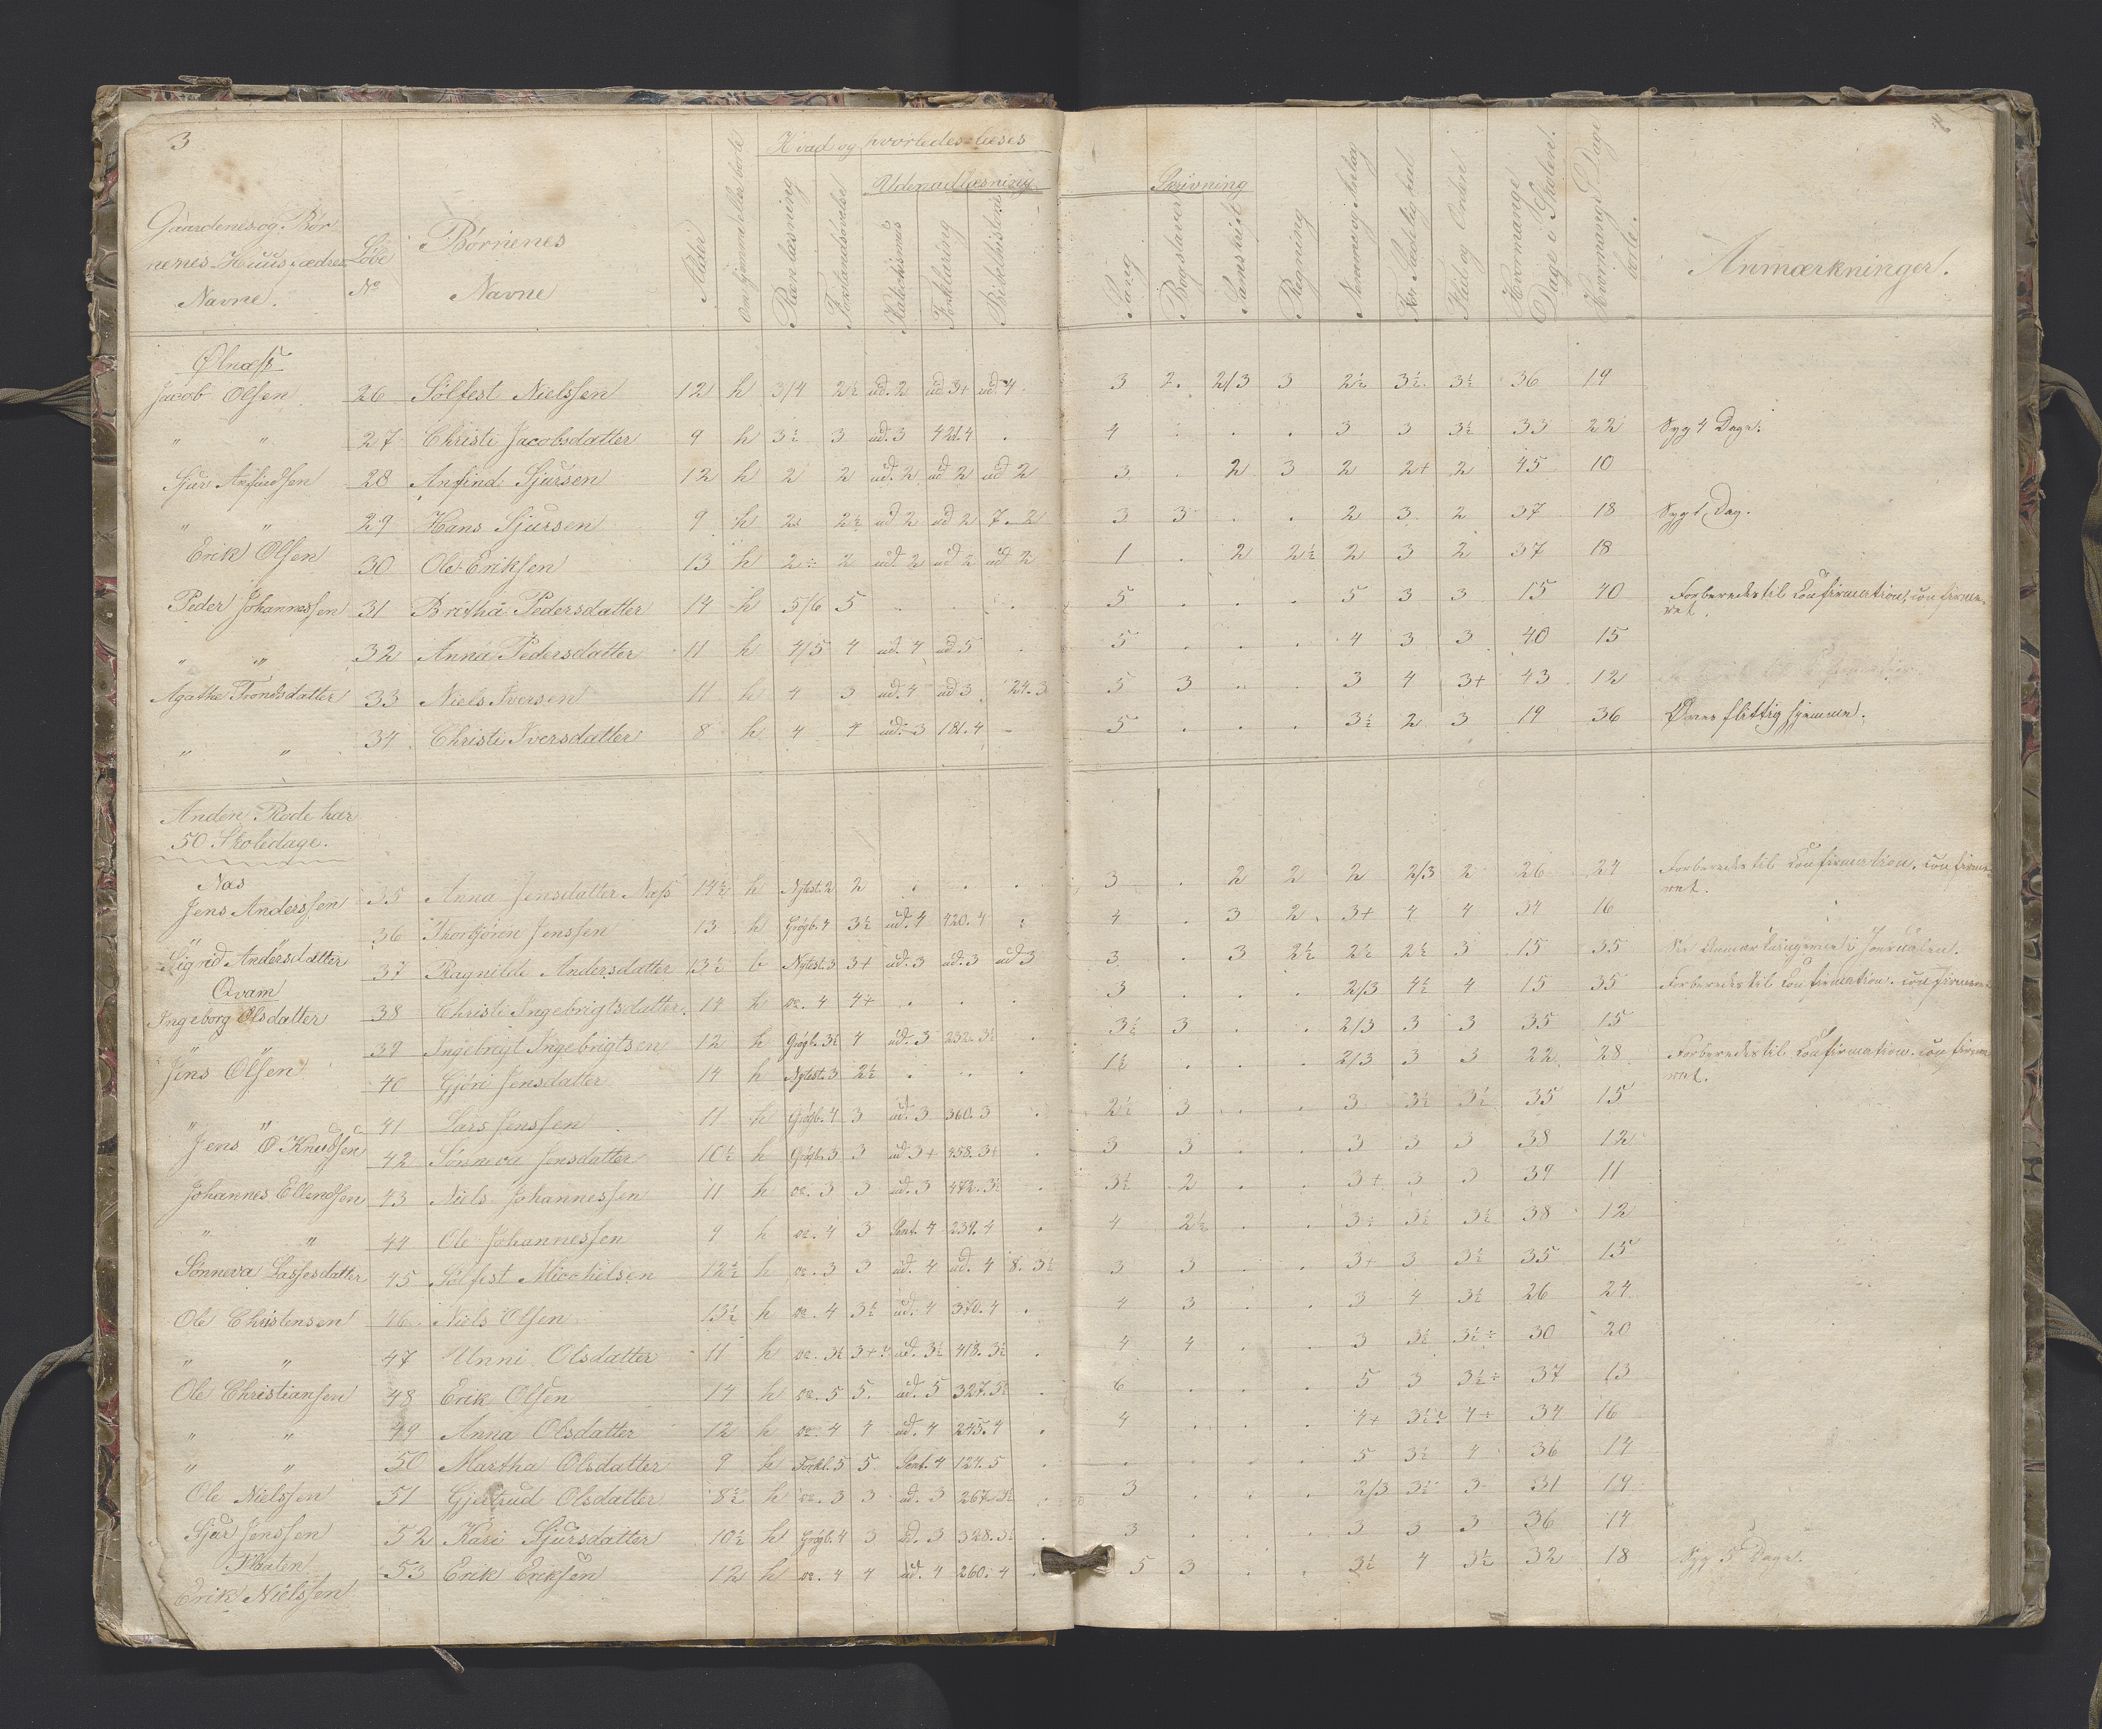 3
4
Gaardenes og Bør
nenes Huusfædres
Navne.
Løbe
No
Børnenes
Navne
Alder
Om hjemme eller borte
Hvad og hvorledes læses
Reen læsning
Forstandsøvelse
Udenadlæsning
Katechismus
Forklaring
Bibelhistorie
Sang
Skrivning
Bogstaver
Sanskrift
Regning
Nemme og Anlag
For Sædelighed
Flid og Orden
Hvormange
Dage i Skolen.
Hvormange Dage
borte.
Anmærkninger.
Ølnæss
Jacob Olsen 26 Sølfest Nielssen 12 h 3/4 2½ ud. 2 ud 3+ ud. 4 3 2. 2/3 3 2½ 3½ 3½ 36 19
" " 27 Christi Jacobsdatter 9 h 3½ 3 ud. 3 421.4 . 4 . . . 3 3 3½ 33 22 Syg 4 Dage.
Sjur Anfindsen 28 Anfind Sjursen 12 h 2 2 ud. 2 ud 2 ud 2 3 . 2 3 2 2+ 2 45 10
" " 29 Hans Sjursen 9 h 2 2½ ud 2 ud 2 7. 2 3 3 . . 2 3 2 37 18 Syg 1 Dag.
Erik Olsen 30 Ole Eriksen 13 h 2÷ 2 ud. 2 ud 2 ud 2 1 . 2 2½ 2 3 2 37 18
Peder Johannessen 31 Britha Pedersdatter 14 h 5/6 5 . . . 5 . . . 5 3 3 15 40 Forberedes til Confirmation, confirme-
ret.
" " 32 Anna Pedersdatter 11 h 4/5 4 ud. 4 ud 5 . 5 . . . 4 3 3 40 15
Agathe Trondsdatter 33 Niels Iversen 11 h 4 3 ud. 4 ud 3 24. 3 5 3 . . 3 4 3+ 43 12
" " 34 Christi Iversdatter 8 h 4 4 ud. 3 181. 4 - 5 . . . 3½ 2 3 19 36 Øves flittig hjemme.
Anden Rode har
50 Skoledage.
Næs
Jens Anderssen 35 Anna Jensdatter Næss 14½ h Nytest. 2 2 . . . 3 . 2 2 2 2/3 2 26 24 Forberedes til Confirmation. confirme-
ret.
" " 36 Thorbjören Jenssen 13 h Grøgb. 4 3½ ud. 4 420. 4 . 4 . 3 2. 3+ 4 4 34 16
Sigrid Andersdatter 37 Ragnilde Andersdatter 13½ b Nytest. 3 3+ ud. 3 ud. 3 ud 3 3 . 3 2½ 2½ 2½ 3 15 35 See Anmærkningerne i Journalen.
Qvam
Ingeborg Olsdatter 38 Christi Ingebrigtsdatter. 14 h do. 4 4+ . . . 3 . . . 2/3 4½ 4 15 35 Forberedes til Confirmation. confirmeret
" " 39 Ingebrigt Ingebrigtsen 12 h Grøgb. 3½ 4 ud. 3 232. 3½ . 3½ 3 . . 2/3 3 3 35 15
Jens Olsen 40 Gjöri Jensdatter 14 h Nytest. 3 2½ . . . 1½ . . . 2/3 3 3 22 28 Forberedes til Confirmation. confirme
ret.
" " 41 Lars Jenssen 11 h Grøgb. 4 3 ud. 3 360. 3 . 2½ 3 . . 3 3½ 3½ 35 15
Jens O Knudsen 42 Sønneva Jensdatter 10½ h Grøgb. 3 3 ud 3+ 458. 3+ . 3 3 . . 3 3 3 38 12
Johannes Ellendsen 43 Niels Johannessen 11 h do. 3 3 ud. 3 472. 3½ . 3½ 2 . . 3+ 3 3 39 11
" " 44 Ole Johannessen 9 h do. 4 3 Pont. 4 239. 4 . 4 2½ . . 3÷ 3½ 3½ 38 12
Sønneva Lassesdatter 45 Sølfest Michelsen 12½ h do. 3 3 ud. 4 ud. 4 8. 3½ 3 3 . . 3+ 3 3½ 35 15
Ole Christensen 46 Niels Olsen 13½ h do. 4 3½ ud. 4 370. 4 . 4 3 . . 3 4 3½ 26 24
" " 47 Unni Olsdatter 11 h do. 3½ 3+ ud. 3½ 418. 3½ . 4 4 . . 3 3½ 3½÷ 30 20
Ole Christiansen 48 Erik Olsen 14 h do. 5 5. ud. 5 327. 5½ . 6 . . . 5 3 3½÷ 37 13
" " 49 Anna Olsdatter 12 h do. 4 4 ud. 4 245. 4 . 4 . . . 4+ 3½÷ 4÷ 34 16
" " 50 Martha Olsdatter 9 h Forkl. 5 5 Pont. 4 124. 5 . . . . . 5 3½ 4 36 14
Ole Nielssen 51 Gjertrud Olsdatter 8½ h do. 3 3 ud. 3 267. 3½ . 3 . . . 2/3 3½ 3 31 19
Sjur Jenssen 52 Kari Sjursdatter 10½ h Grøgb. 4 3 ud. 3 328. 3½ . 3 . . . 3 3 3 36 14
Flaaten
Erik Nielssen 53 Erik Eriksen 12 h do. 4 4 ud. 4 260. 4 . 5 3 . . 3½ 4 3½ 32 18 Syg 5 Dage.